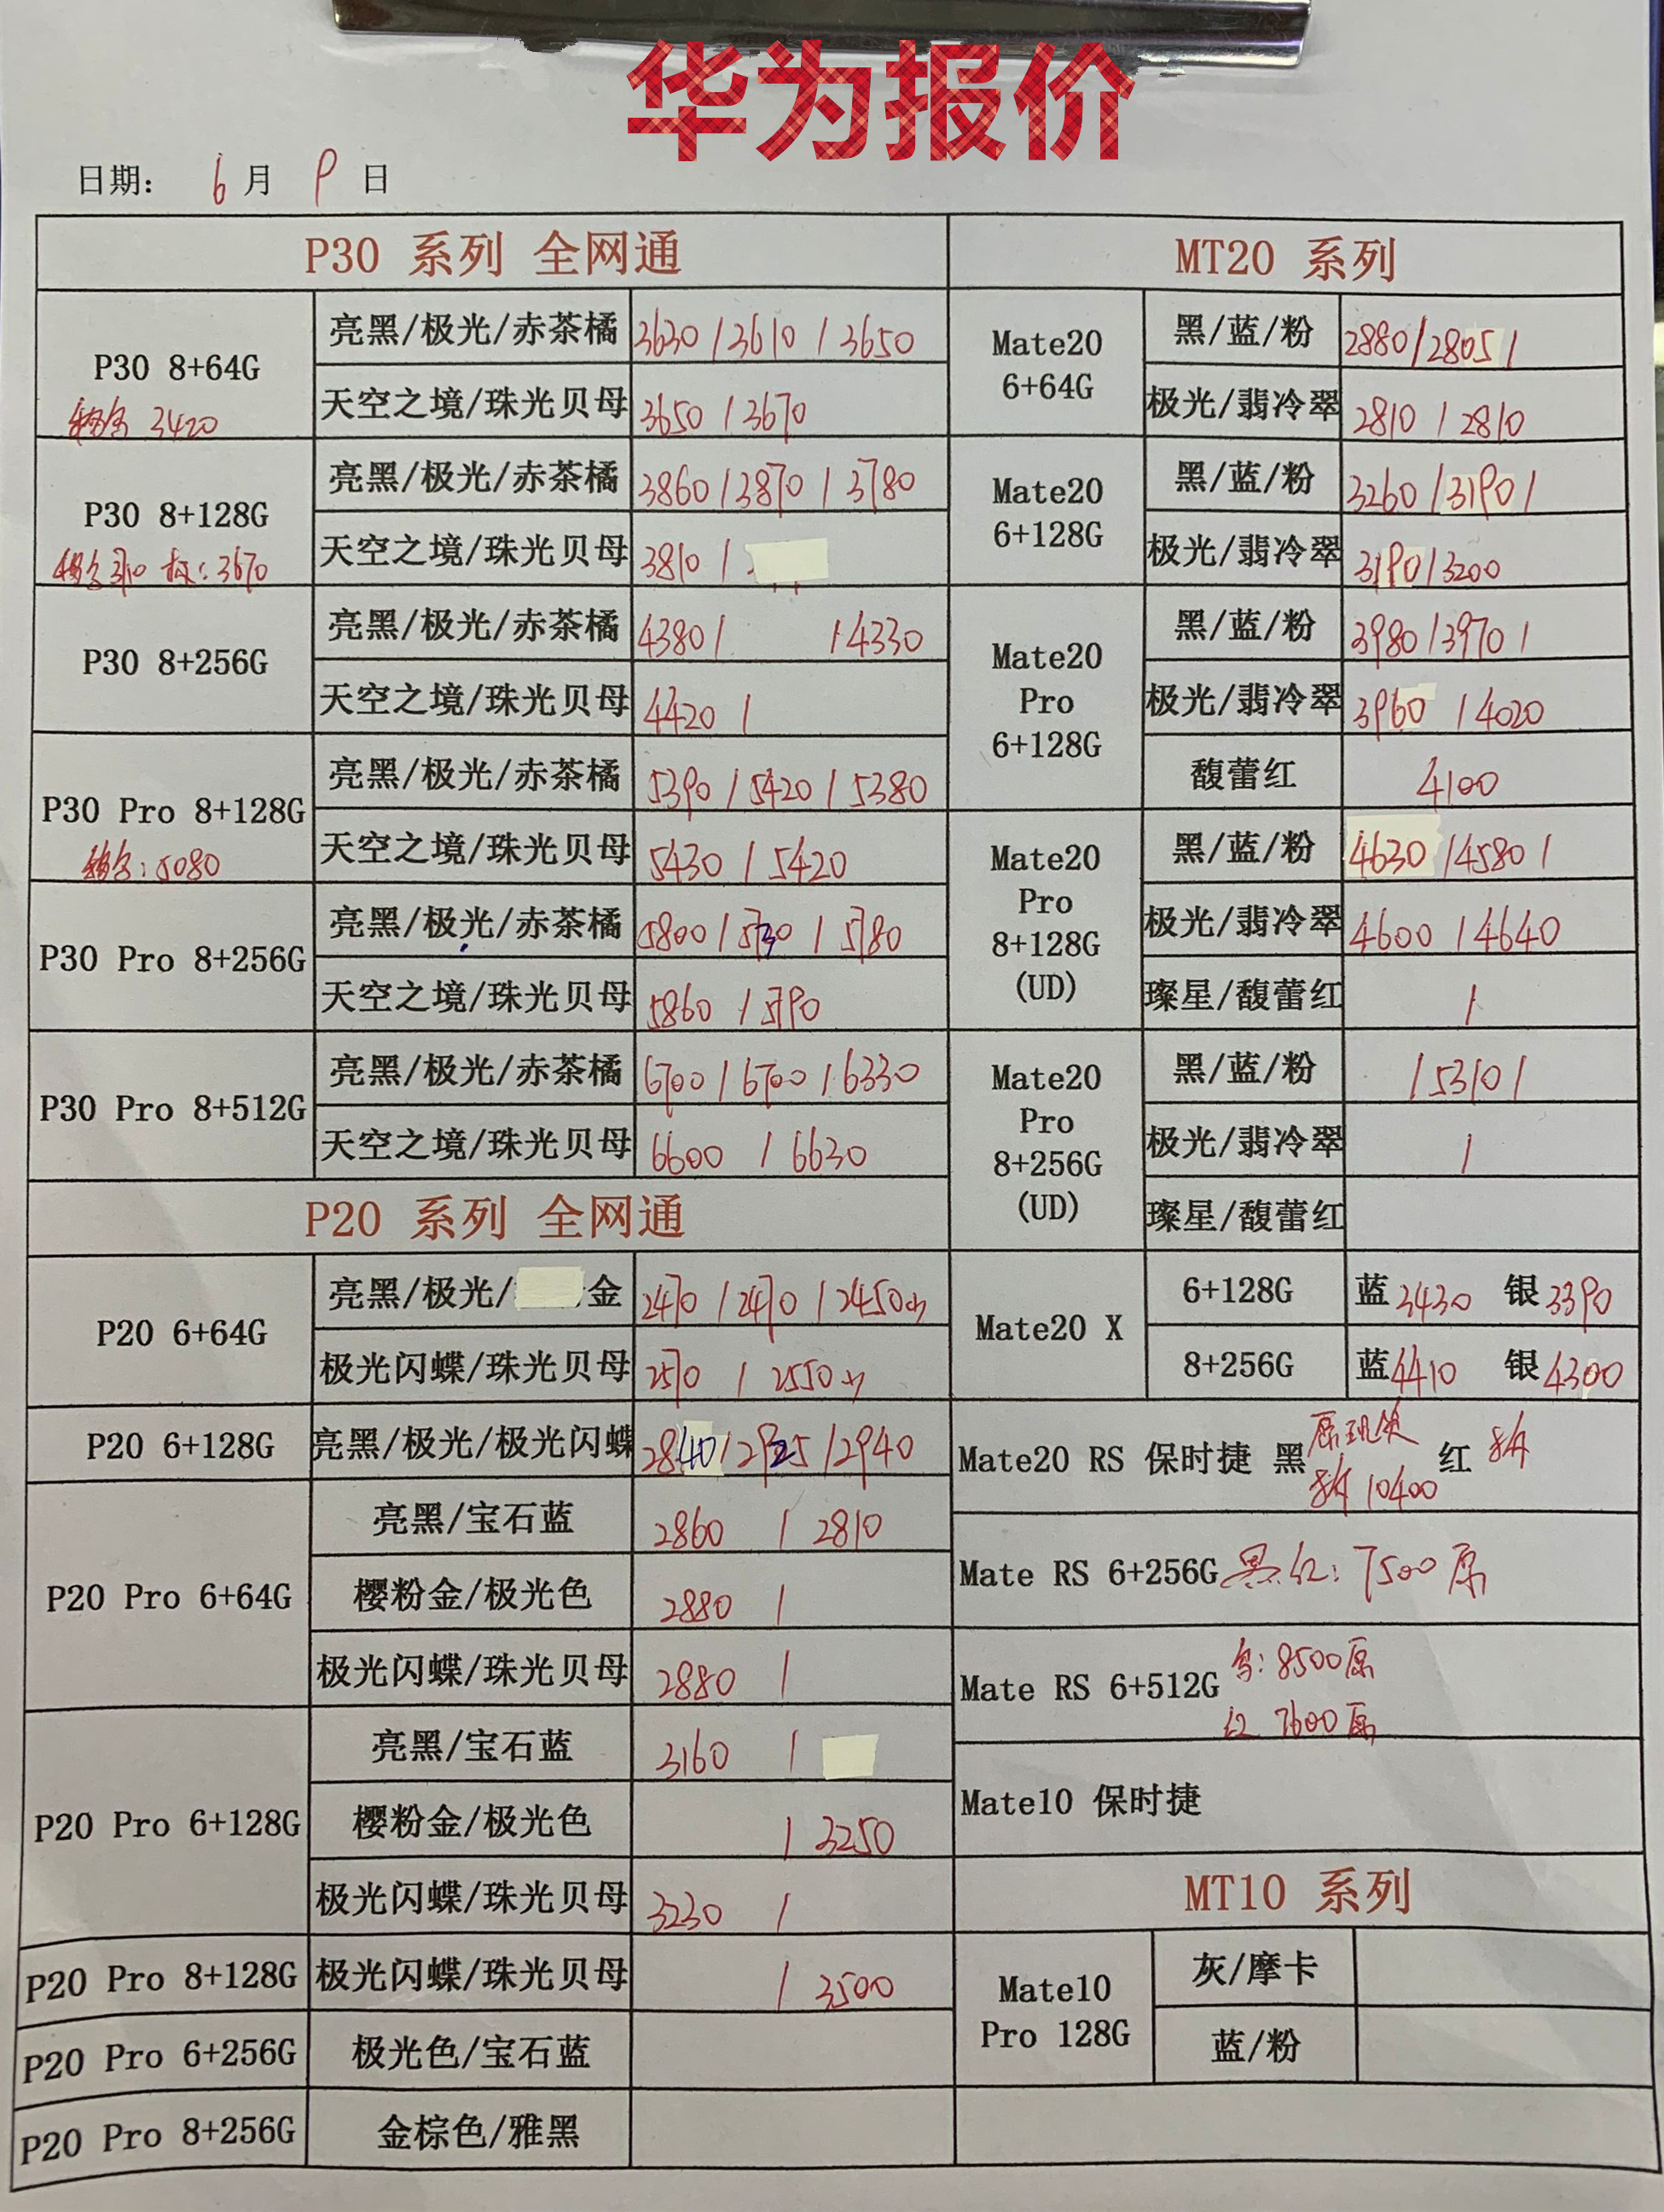 华为报价
日期: 6 月 9 日
P30 系列 全网通
P30 8+64G
3420
亮黑/极光/赤茶橘 3630 / 3610 / 3650
天空之境/珠光贝母 3650 / 3670
P30 8+128G
3670
亮黑/极光/赤茶橘 3860 / 3870 / 3780
天空之境/珠光贝母 3810 /
P30 8+256G
亮黑/极光/赤茶橘 4380 / / 4330
天空之境/珠光贝母 4420 /
P30 Pro 8+128G
: 5080
亮黑/极光/赤茶橘 5390 / 5420 / 5380
天空之境/珠光贝母 5430 / 5420
P30 Pro 8+256G
亮黑/极光/赤茶橘 5800 / 5730 / 5780
天空之境/珠光贝母 5860 / 5790
P30 Pro 8+512G
亮黑/极光/赤茶橘 6700 / 6700 / 6330
天空之境/珠光贝母 6600 / 6630
P20 系列 全网通
P20 6+64G
亮黑/极光/ 金 2470 / 2470 / 2450
极光闪蝶/珠光贝母 2570 / 2550
P20 6+128G
亮黑/极光/极光闪蝶 2840 / 2925 / 2940
P20 Pro 6+64G
亮黑/宝石蓝 2860 / 2810
樱粉金/极光色 2880 /
极光闪蝶/珠光贝母 2880 /
P20 Pro 6+128G
亮黑/宝石蓝 3160 /
樱粉金/极光色 / 3250
极光闪蝶/珠光贝母 3230 /
P20 Pro 8+128G
极光闪蝶/珠光贝母 / 3500
P20 Pro 6+256G
极光色/宝石蓝
P20 Pro 8+256G
金棕色/雅黑
MT20 系列
Mate20
6+64G
黑/蓝/粉 2880 / 2805 /
极光/翡冷翠 2810 / 2810
Mate20
6+128G
黑/蓝/粉 3260 / 3190 /
极光/翡冷翠 3190 / 3200
Mate20
Pro
6+128G
黑/蓝/粉 3980 / 3970 /
极光/翡冷翠 3960 / 4020
馥蕾红 4100
Mate20
Pro
8+128G
(UD)
黑/蓝/粉 4630 / 4580 /
极光/翡冷翠 4600 / 4640
璨星/馥蕾红 /
Mate20
Pro
8+256G
(UD)
黑/蓝/粉 / 5310 /
极光/翡冷翠 /
璨星/馥蕾红
Mate20 X
6+128G 蓝 3430 银 3390
8+256G 蓝 4410 银 4300
Mate20 RS 保时捷 黑 10400 红
Mate RS 6+256G 黑红: 7500 原
Mate RS 6+512G : 8500 原
红 7600 原
Mate10 保时捷
MT10 系列
Mate10
Pro 128G
灰/摩卡
蓝/粉